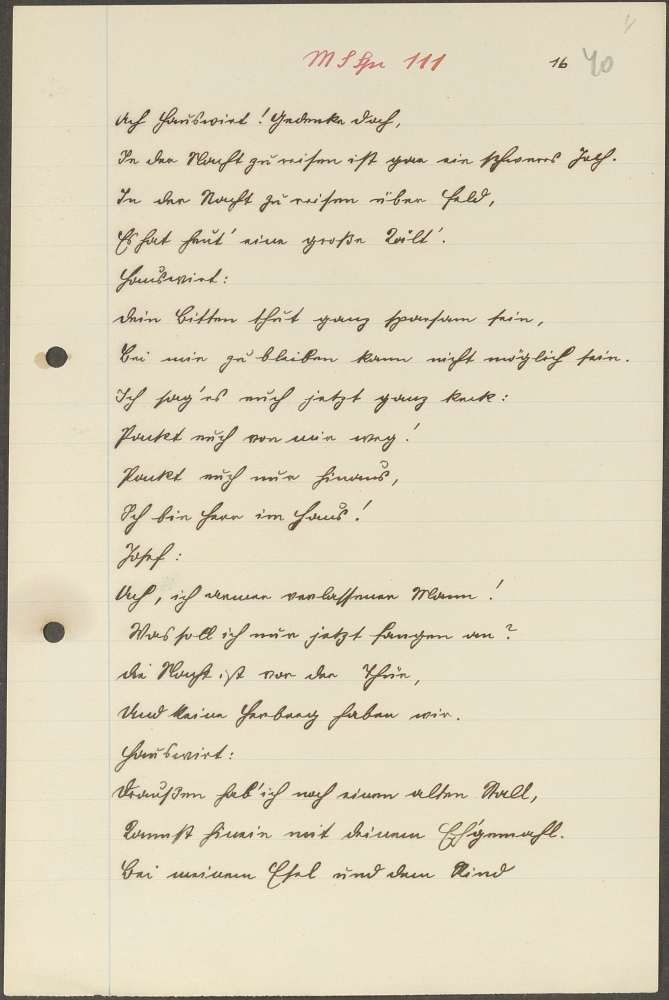 M S Spr 111 16 40
Ach Hauswirt! Gedenke doch,
In der Nacht zu reisen ist gar ein schweres Joch.
In der Nacht zu reisen über Feld,
Es hat heut' eine große Kält'.
Hauswirt:
Dein Bitten thut ganz sparsam sein,
Bei mir zu bleiben kann nicht möglich sein.
Ich sag's euch jetzt ganz keck:
Packt euch von mir weg!
Packt euch nur hinaus,
Ich bin Herr im Haus!
Josef:
Ach, ich armer verlassener Mann!
Was soll ich nur jetzt fangen an?
Die Nacht ist vor der Thür,
Und keine Herberg haben wir.
Hauswirt:
Draußen hab' ich noch einen alten Stall,
Kannst hinein mit deinem Eh'gemahl.
Bei meinem Esel und dem Rind